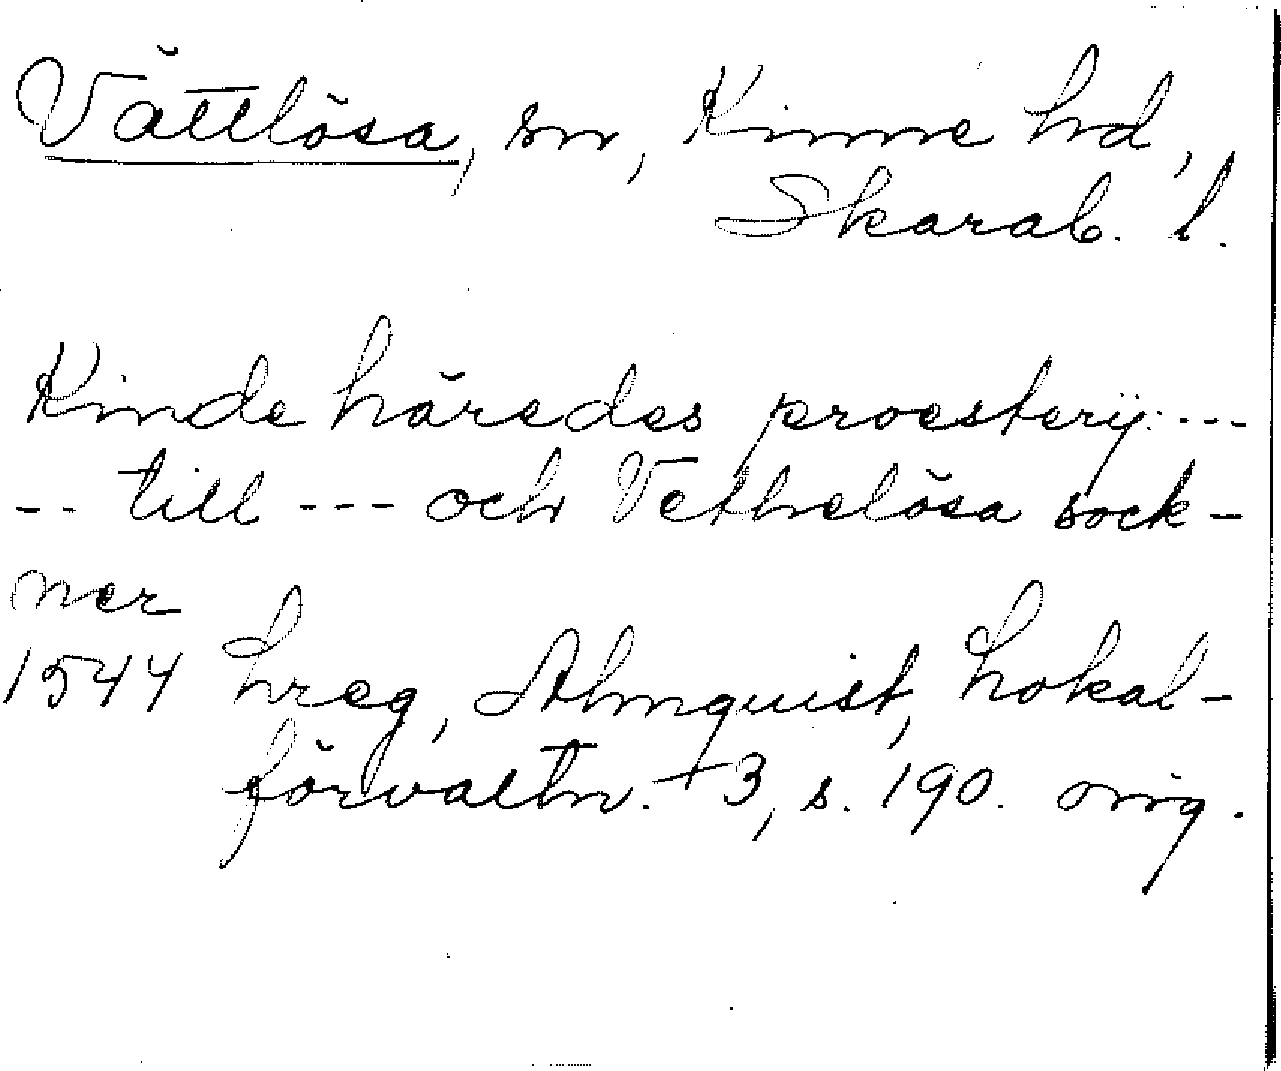 Vättlösa, sn, Kinne hd,
Skarab. l.
Kinde häredes proesterij: ---
-- till --- och Vethelösa sock-
ner
1544 Lreg, Almquist, Lokal-
förvaltn. + 3, s. 190. orig.